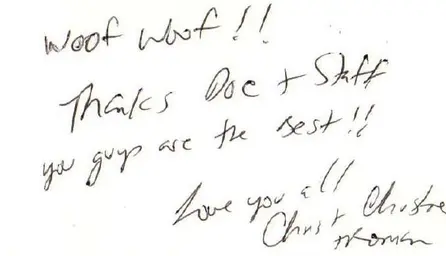 Woof Woof!!
Thanks Doc + Staff
you guys are the Best!!
Love you all
Chris + Christine
+ Roman